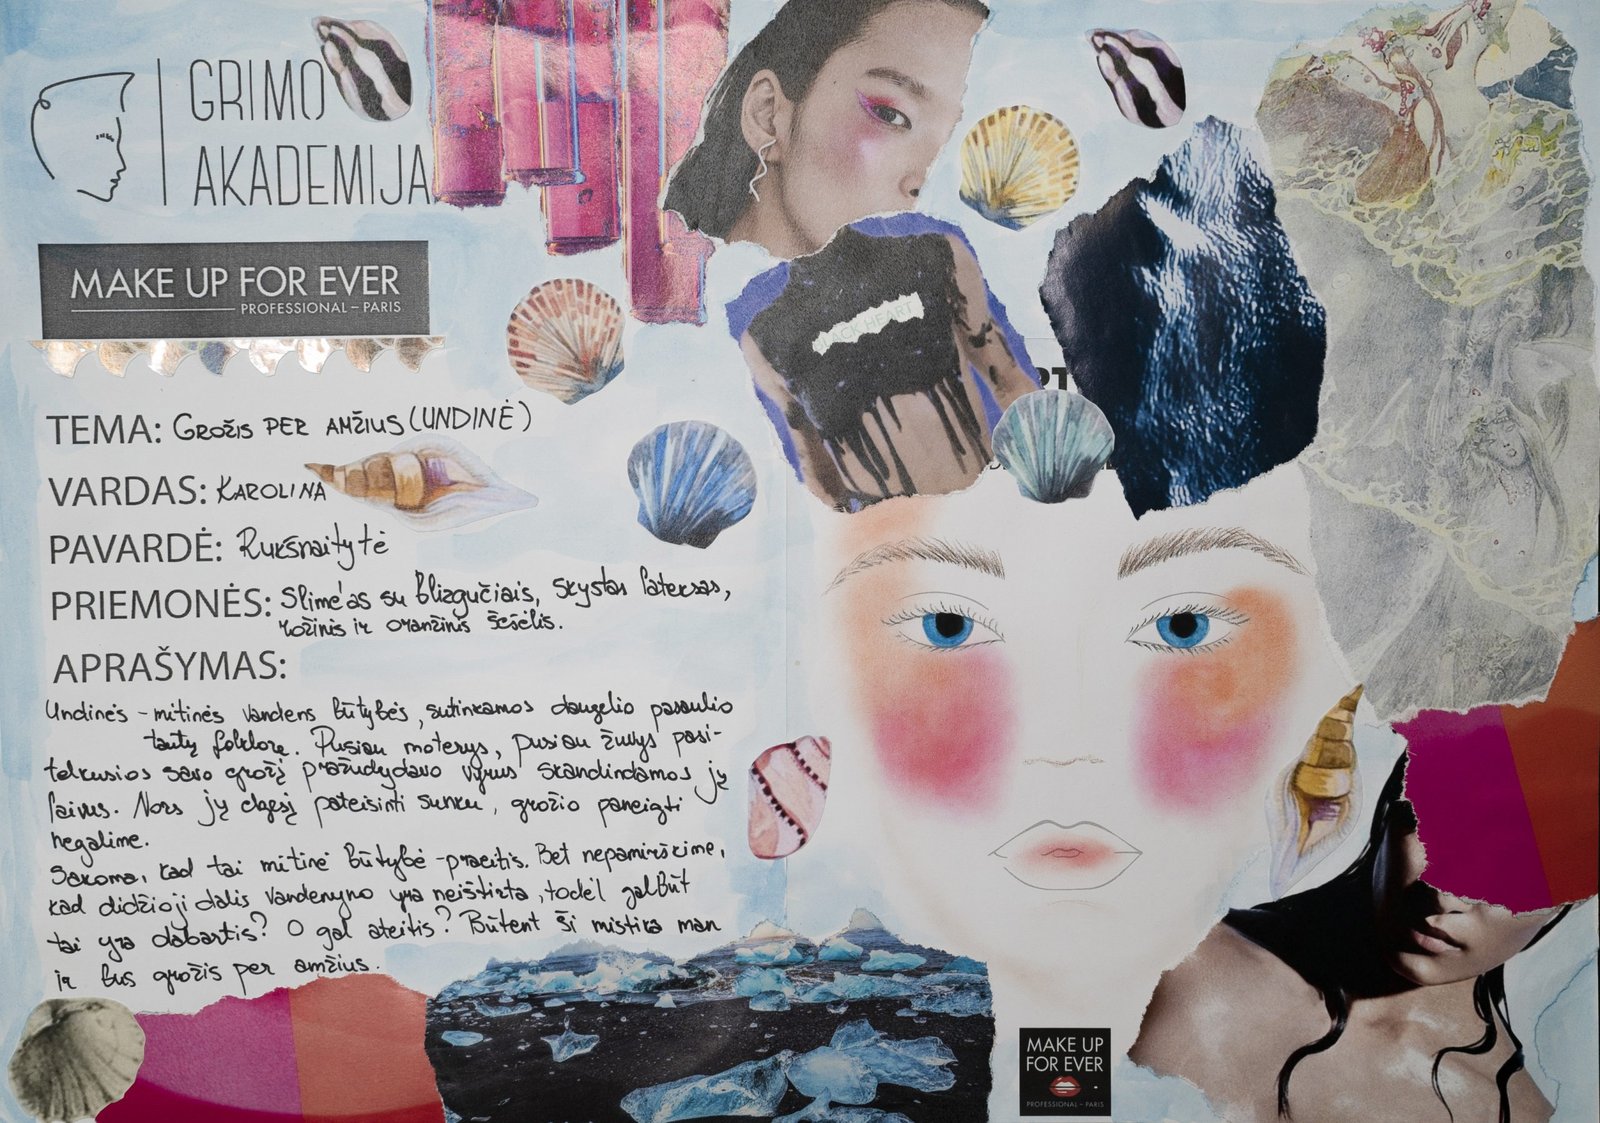 GRIMO
AKADEMIJA
MAKE UP FOR EVER
PROFESSIONAL – PARIS
TEMA: GROŽIS PER AMŽIUS (UNDINĖ)
VARDAS: KAROLINA
PAVARDĖ: Rukšnaitytė
PRIEMONĖS: Slime'as su blizgučiais, skystas lateksas,
rožinis ir oranžinis šešėlis.
APRAŠYMAS:
Undinės - mitinės vandens būtybės, sutinkamos daugelio pasaulio
tautų folklore. Pusiau moterys, pusiau žuvys pasi-
telkusios savo grožį pražudydavo vyrus skandindamos jų
laivus. Nors jų elgesį pateisinti sunku, grožio paneigti
negalime.
Sakoma, kad tai mitinė būtybė - praeitis. Bet nepamirškime,
kad didžioji dalis vandenyno yra neištirta, todėl galbūt
tai yra dabartis? O gal ateitis? Būtent ši mistika man
ir bus grožis per amžius.
CK HEART
MAKE UP
FOR EVER
PROFESSIONAL – PARIS